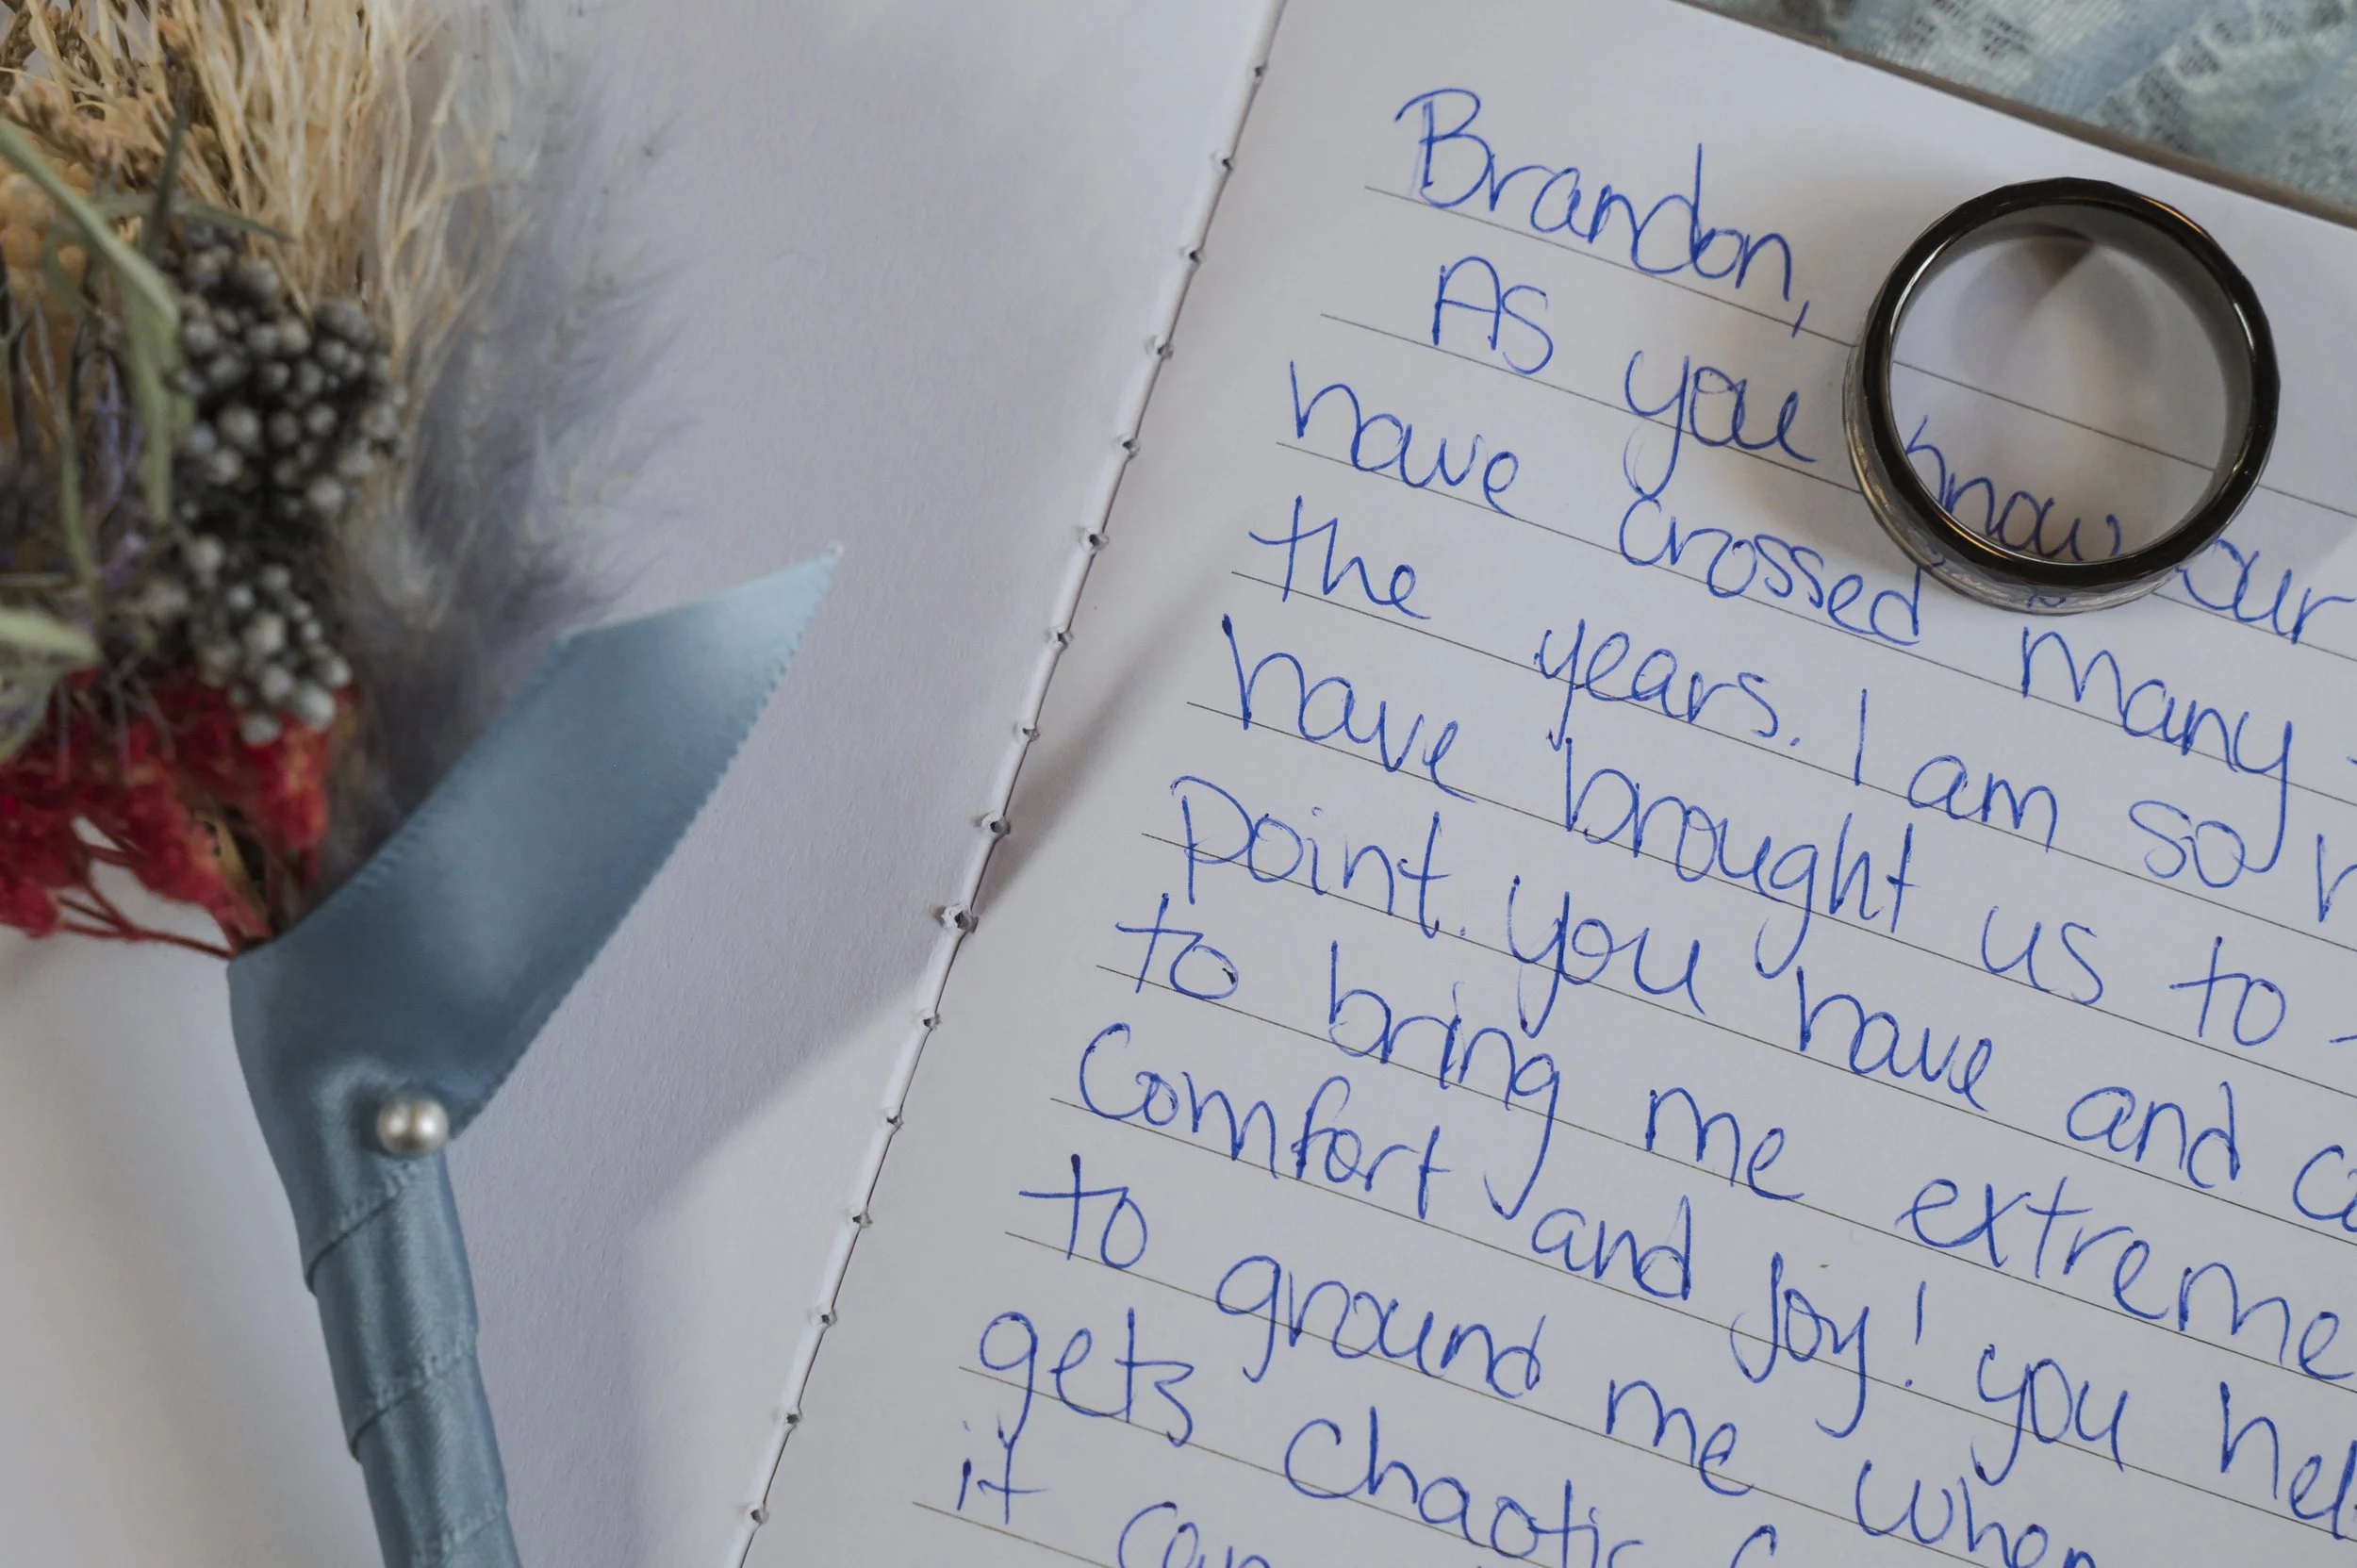 Brandon,
As you know our
have crossed many
the years. I am so
have brought us to
point. you have and
to bring me extreme
Comfort and joy! you
to ground me when
gets chaotic
it can